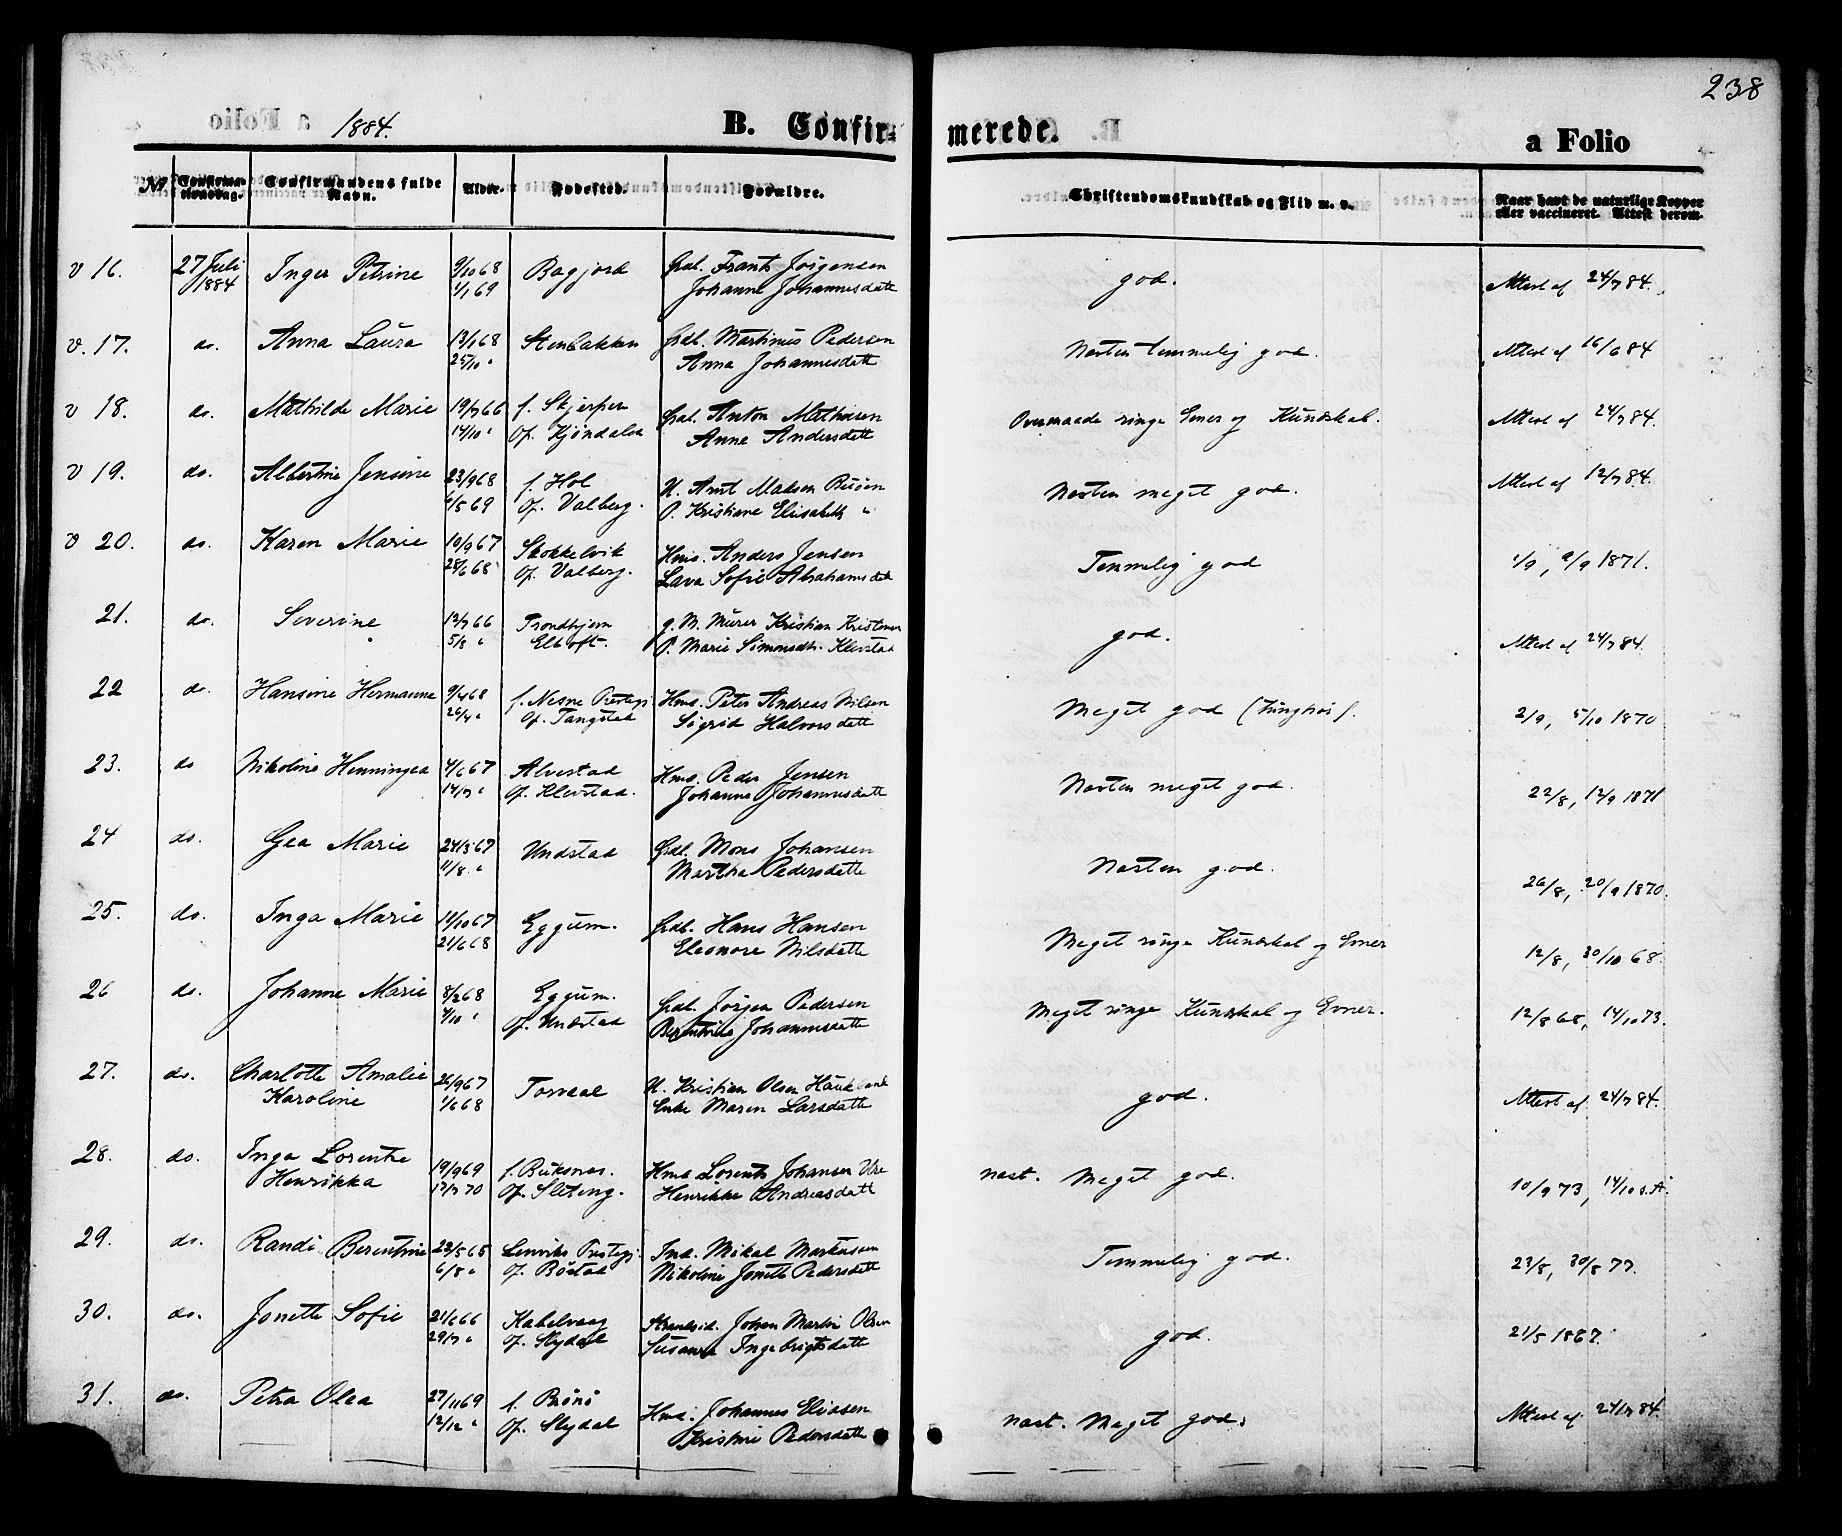 238
1884.
B. Confir- merede.
a Folio
No
Confirma-
tionsdag.
Confirmandens fulde
Navn.
Alder.
Fødested.
Forældre.
Christendomskundskab og Flid m. v.
Naar havt de naturlige Kopper
eller vaccineret. Attest derom.
v 16. 27 Juli Inger Petrine 9/10 68 Bagjord Gdb. Frants Jørgensen god. Attest af 24/7 84.
1884 1/1 69 Johanne Johannesdatt
v. 17. do. Anna Laura 12/1 68 Stenbakken Gdb. Martinus Pedersen Næsten temmelig god. Attest af 16/6 84
25/10 " Anna Johannesdatt
v 18. do. Mathilde Marie 19/7 66 f. Skjerpen Gdb. Anton Mathisen Overmaade ringe Evner og Kundskab. Attest af 24/7 84.
14/10 " Of. Kjøndalen Anne Andersdatt
v 19. do. Albertine Jensine 23/9 68 f. Hol U. Arnt Madsen Næsten meget god. Attest af 12/7 84.
6/5 69 Of. Valberg. P. Kristiane Elisabeth "
v 20. do. Karen Marie 10/9 67 Skokkelvik Hmd. Anders Jensen Temmelig god 1/9, 9/9 1871.
28/6 68 Of. Valberg. Lava Sofie Abrahamsdatt
21. do. Severine 12/7 66 Trondhjem g. M. Murer Kristian Kristensen god. Attest af 24/7 84.
5/8 " Eltoft. P. Marie Simonsdtr. Klevstad
22 do. Hansine Hermanna 9/4 68 f. Nesne Præstegj. Hmd. Peter Andreas Nilsen Meget god 2/9, 5/10 1870
26/4 " Of. Tangstad Sigrid Halvorsdatt
23. do Nikoline Henningea 4/6 67 Alvestad Hmd. Peder Jensen Næsten meget god. 22/8, 12/9 1871
14/7 " Of. Klevstad. Johanne Johannesdatt
24 do. Gea Marie 24/5 67 Undstad Gdb. Mons Johansen Næsten god. 26/8, 20/9 1870.
11/8 " Martha Pedersdatt
25. do. Inga Marie 10/10 67 Eggum. Gdb. Hans Hansen Meget ringe Kundskab og Evner 12/8, 30/10 68.
21/6 68 Eleonore Nilsdatt
26 do. Johanne Marie 8/2 68 Eggum. Gdb. Jørgen Pedersen Meget ringe Kundskab og Evner. 12/8 68, 14/10 73.
4/10 " Of. Undstad Berntine Johannesdatt
27. do. Charlotte Amalie 26/9 67 Torvdal U. Kristian Olsen Haukland god. Attest af 24/7 84.
Karoline 1/6 68 Enke Maren Larsdatt
28. do. Inga Lorentze 19/9 69 f. Buksnæs. Hmd Lorents Johansen Ure næst. Meget god. 10/9 73, 14/10 s.A.
Henrikka 17/7 70 Of. Sleteng. Henrikke Andreasdatt
29. do. Randi Berentine 23/5 65 Lenviks Præstegj. Ind. Mikal Markussen Temmelig god. 23/8, 30/8 77.
6/8 " Of. Bøstad Nikoline Jonette Pedersdatt
30. do. Jonette Sofie 21/6 66 Kabelvaag Strandsid. Johan Martin Olsen god. 21/5 1867.
29/7 " Of. Slydal Susanna Ingebrigtsdatt
31. do. Petra Olea 27/11 69 f. Brønø Hmd. Johannes Elidsen næst. Meget god. Attest af 24/7 84.
12/12 " Of. Slydal Kristine Pedersdatt